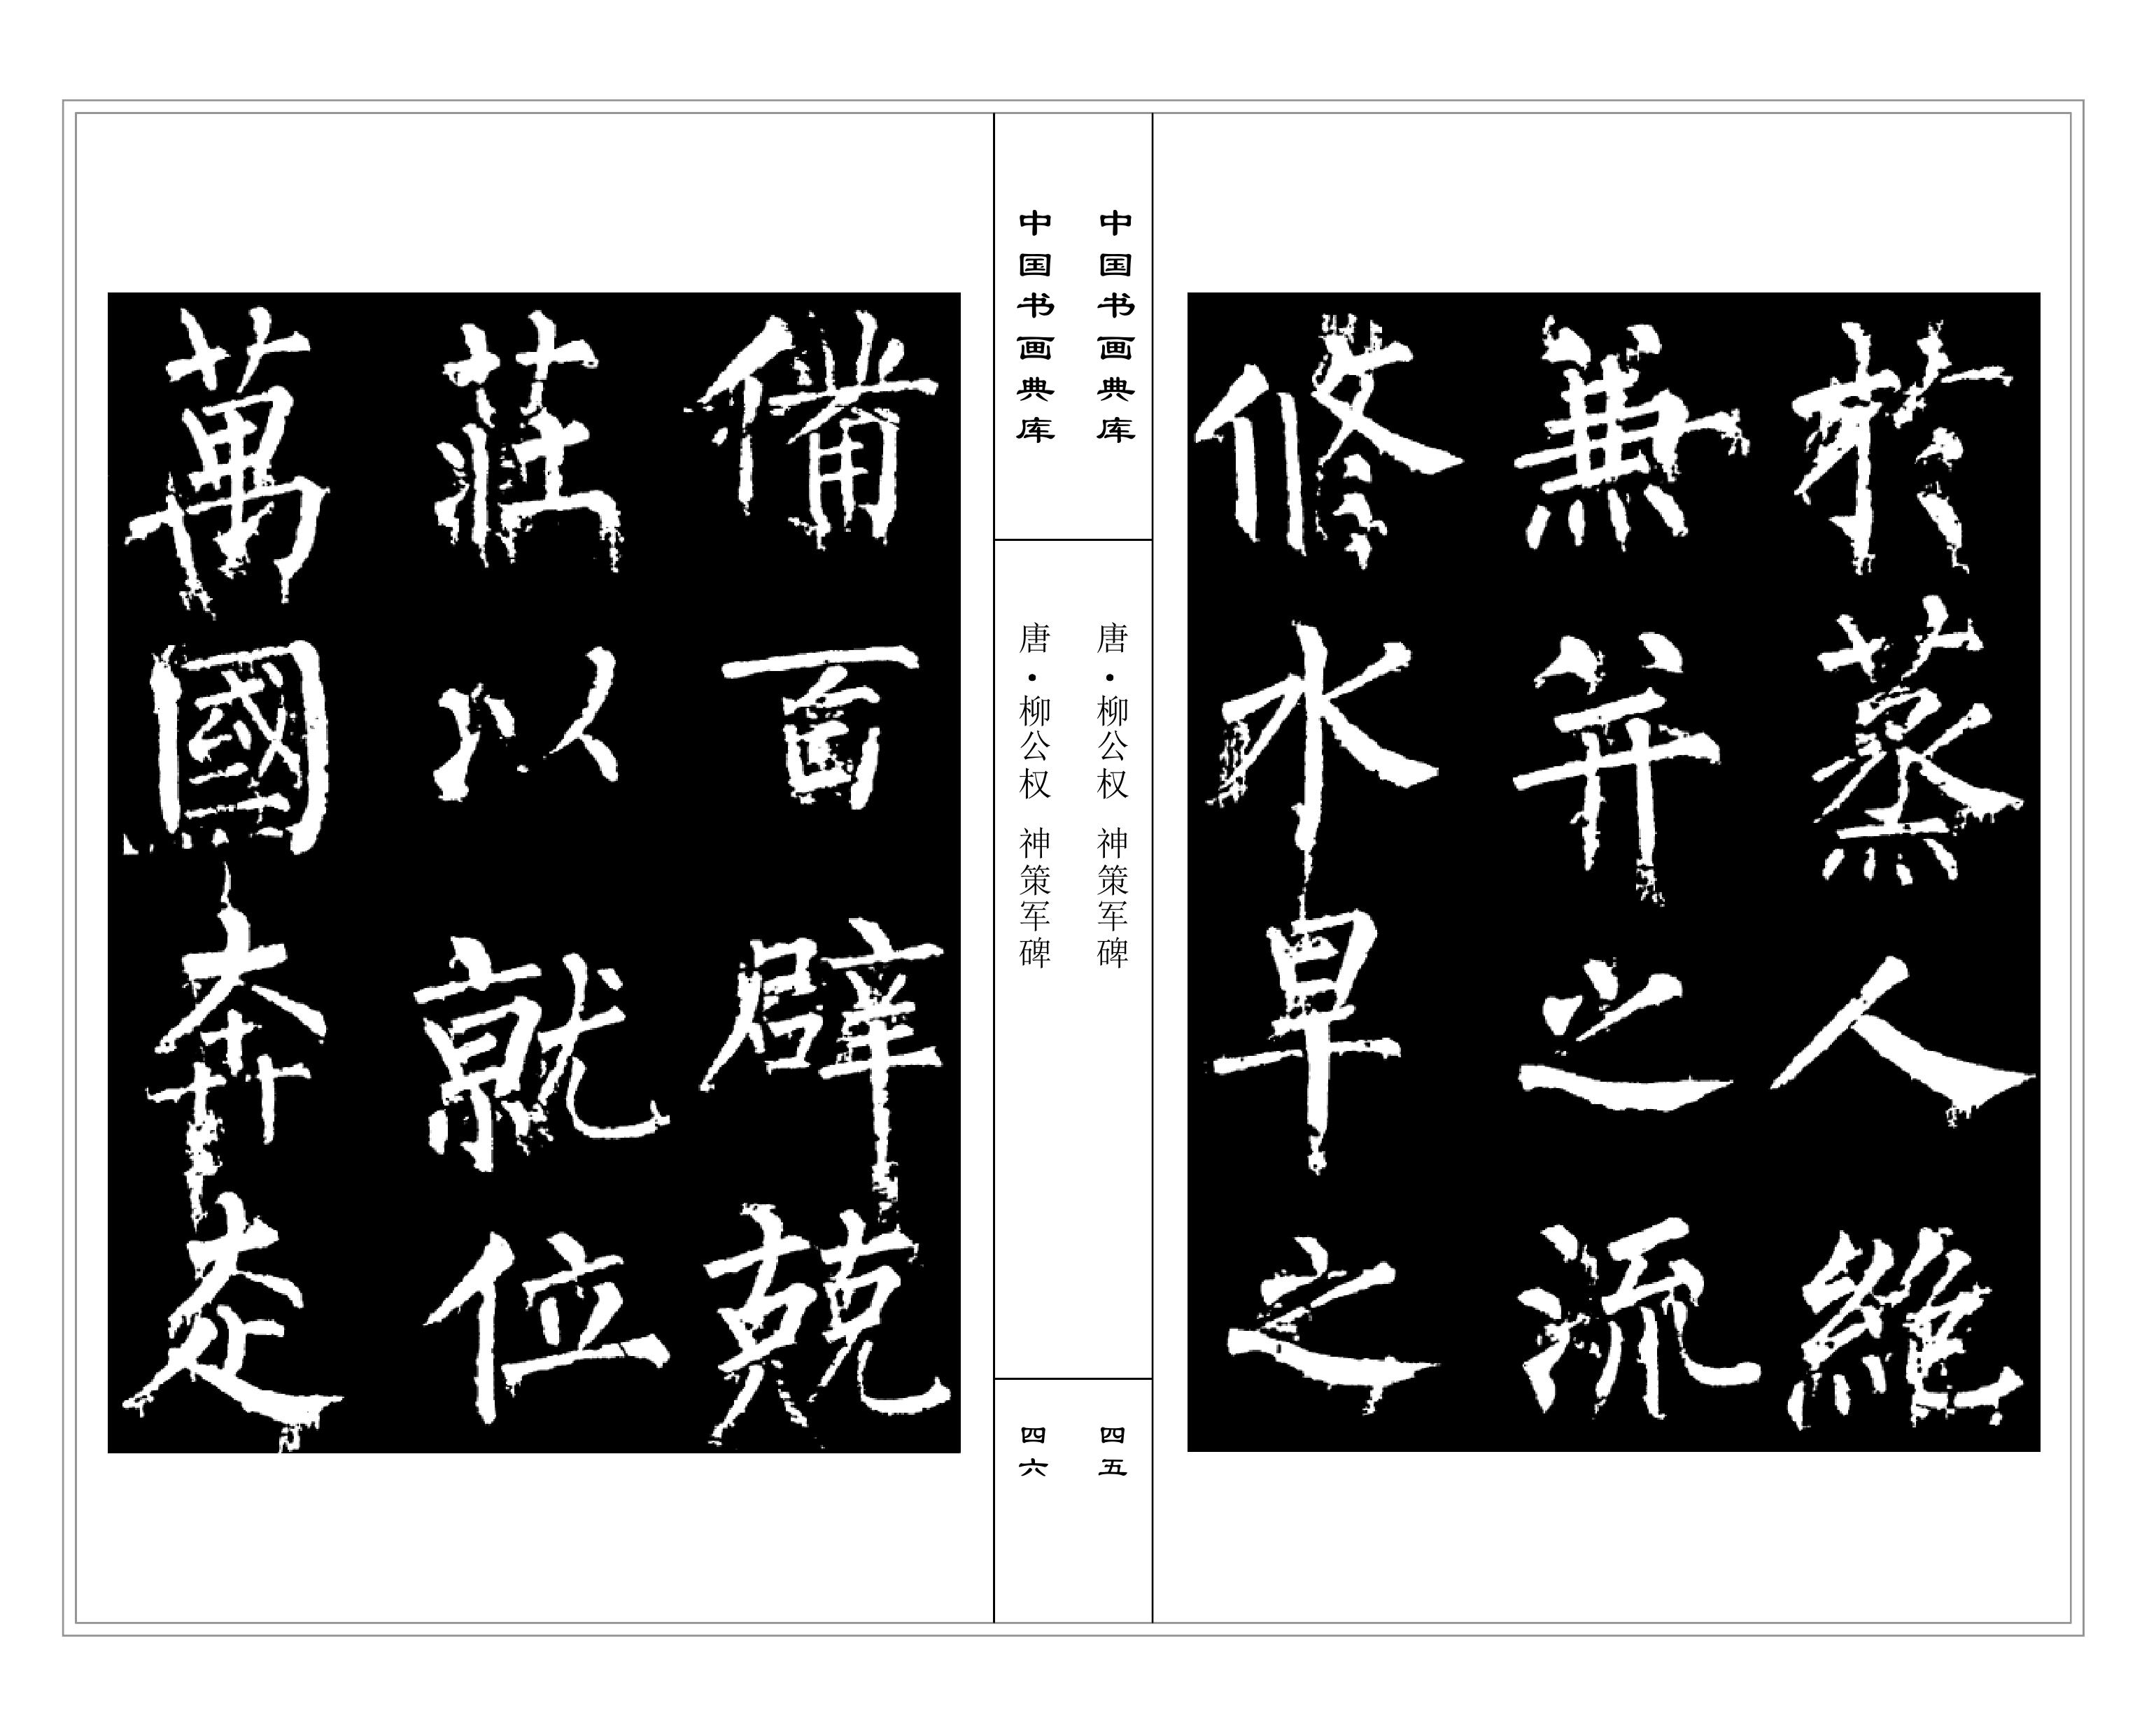 於蒸人絕
兼并之流
修水旱之
中国书画典库
唐·柳公权 神策军碑
四五
中国书画典库
唐·柳公权 神策军碑
四六
備百辟兢
莊以就位
萬國奔走